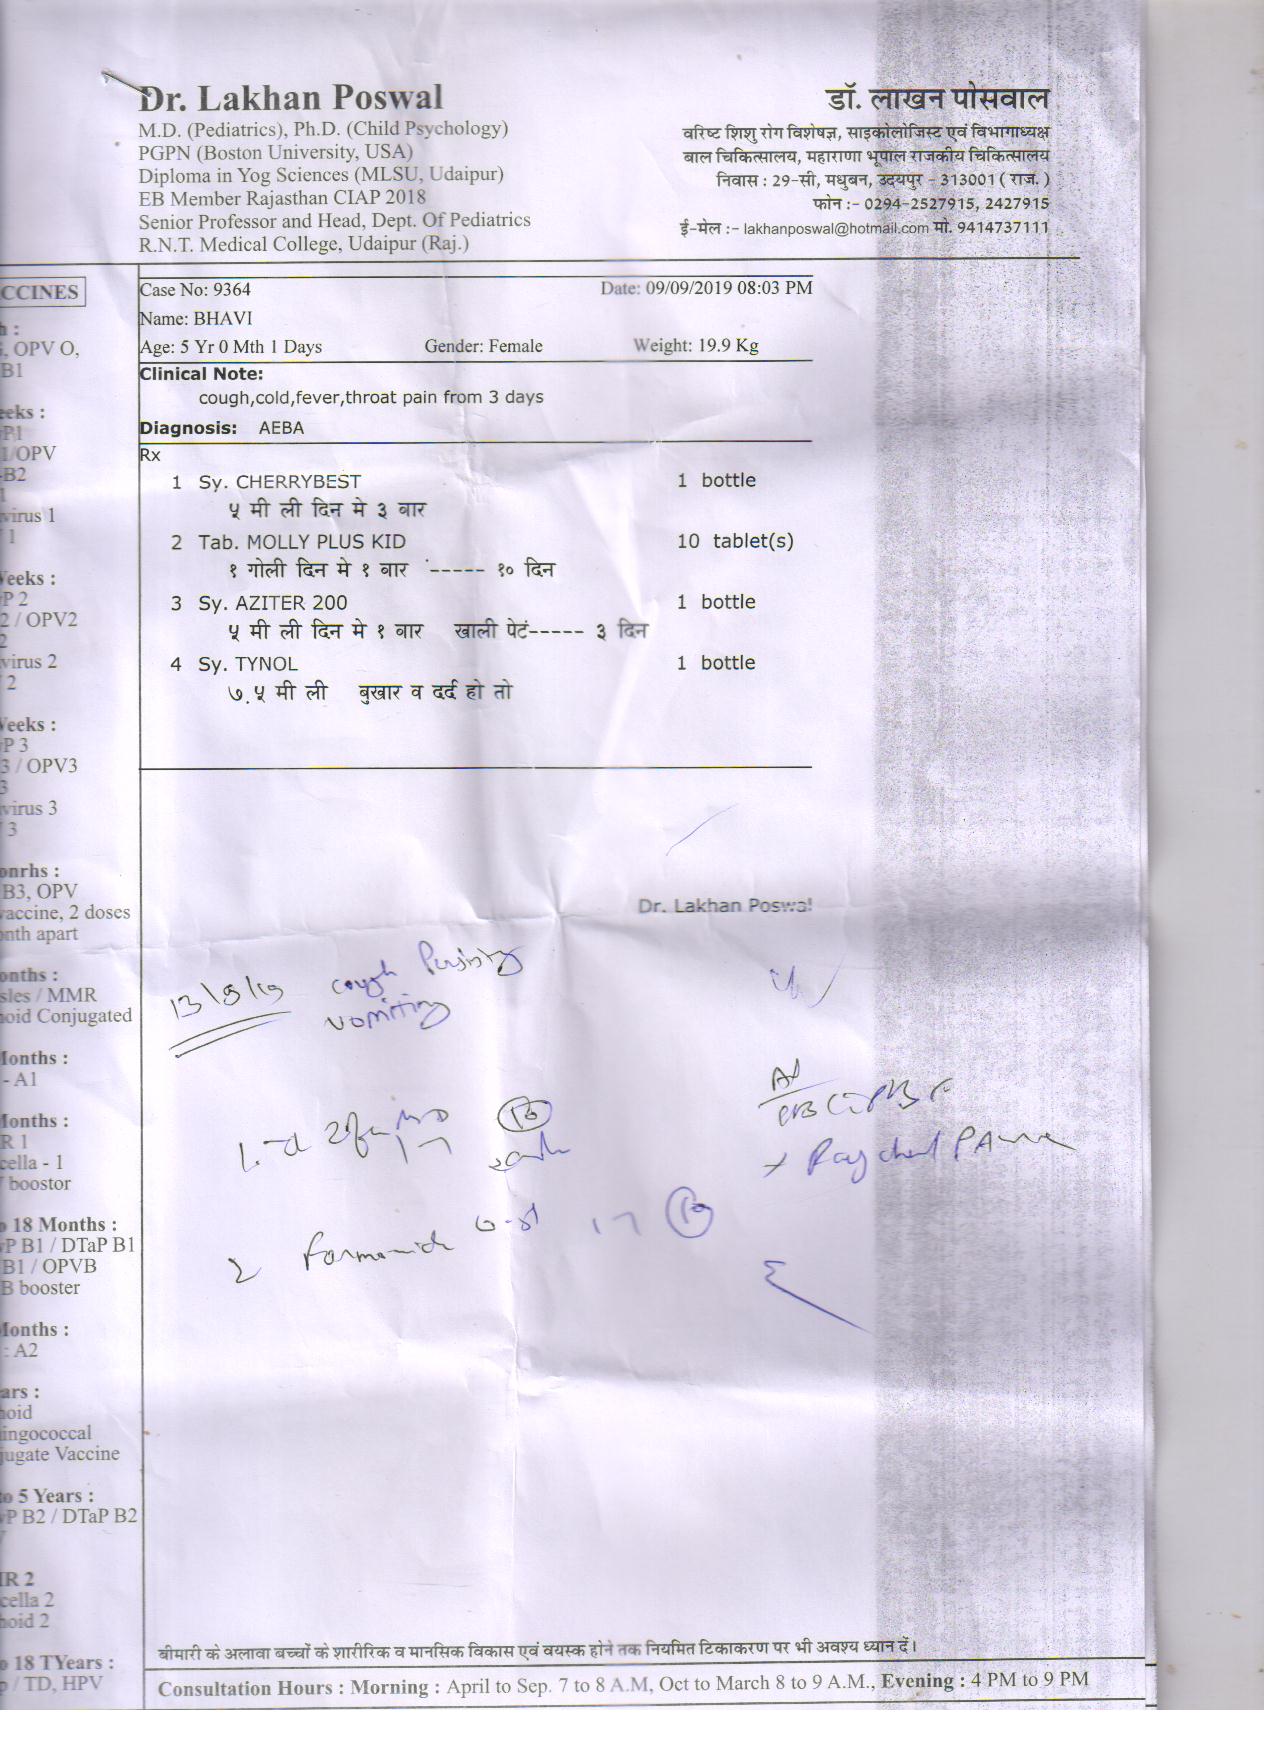 Dr. Lakhan Poswal
M.D. (Pediatrics), Ph.D. (Child Psychology)
PGPN (Boston University, USA)
Diploma in Yog Sciences (MLSU, Udaipur)
EB Member Rajasthan CIAP 2018
Senior Professor and Head, Dept. Of Pediatrics
R.N.T. Medical College, Udaipur (Raj.)
डॉ. लाखन पोसवाल
वरिष्ट शिशु रोग विशेषज्ञ, साइकोलोजिस्ट एवं विभागाध्यक्ष
बाल चिकित्सालय, महाराणा भूपाल राजकीय चिकित्सालय
निवास : 29-सी, मधुबन, उदयपुर - 313001 ( राज. )
फोन :- 0294-2527915, 2427915
ई-मेल :- lakhanposwal@hotmail.com मो. 9414737111
CCINES
, OPV O,
B1
P1
OPV
-B2
virus 1
1
P 2
2 / OPV2
2
virus 2
2
P 3
3 / OPV3
3
virus 3
3
B3, OPV
vaccine, 2 doses
apart
/ MMR
Conjugated
- A1
R 1
- 1
boostor
18 Months :
P B1 / DTaP B1
B1 / OPVB
B booster
: A2
Vaccine
5 Years :
P B2 / DTaP B2
R 2
2
2
18 TYears :
/ TD, HPV
Case No: 9364 Date: 09/09/2019 08:03 PM
Name: BHAVI
Age: 5 Yr 0 Mth 1 Days Gender: Female Weight: 19.9 Kg
Clinical Note:
cough,cold,fever,throat pain from 3 days
Diagnosis: AEBA
Rx
1 Sy. CHERRYBEST 1 bottle
५ मी ली दिन मे ३ बार
2 Tab. MOLLY PLUS KID 10 tablet(s)
१ गोली दिन मे १ बार ----- १० दिन
3 Sy. AZITER 200 1 bottle
५ मी ली दिन मे १ बार खाली पेटं----- ३ दिन
4 Sy. TYNOL 1 bottle
७.५ मी ली बुखार व दर्द हो तो
Dr. Lakhan Poswal
13/9/19 cough
vomiting
2
बीमारी के अलावा बच्चों के शारीरिक व मानसिक विकास एवं वयस्क होने तक नियमित टिकाकरण पर भी अवश्य ध्यान दें।
Consultation Hours : Morning : April to Sep. 7 to 8 A.M, Oct to March 8 to 9 A.M., Evening : 4 PM to 9 PM